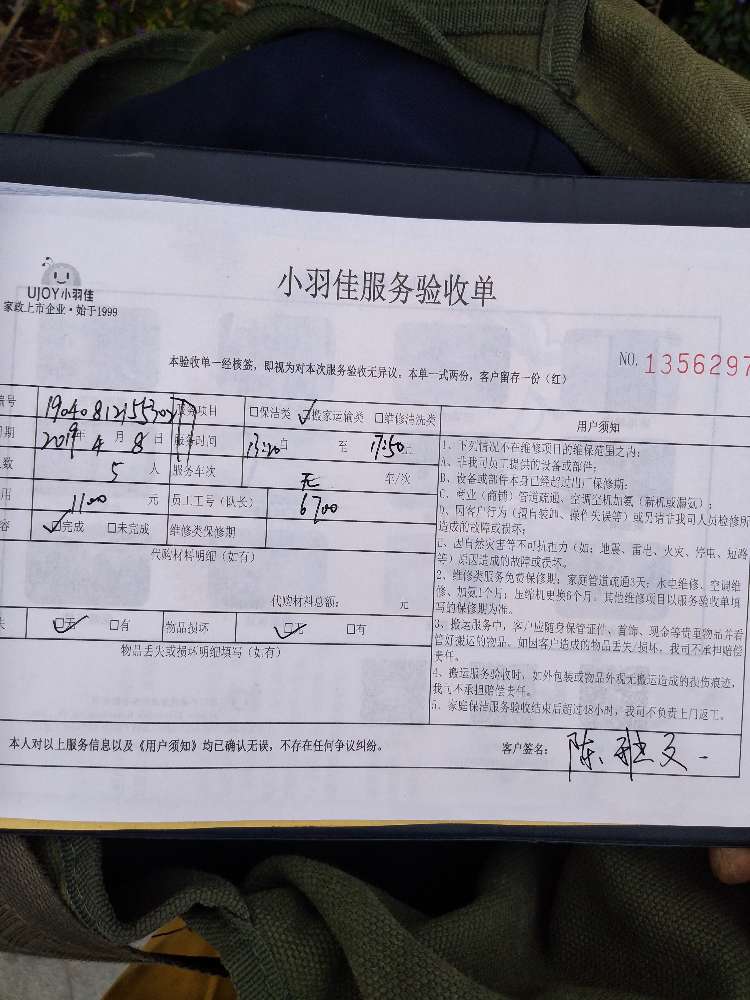 UJOY小羽佳
家政上市企业·始于1999
小羽佳服务验收单
本验收单一经核签,即视为对本次服务验收无异议。本单一式两份,客户留存一份(红)
NO. 1356297
编号 服务项目 □保洁类 ☑搬家运输类 □维修清洗类
日期 2019年4月8日 服务时间 13:20 至 17:50
人数 5 人 服务车次 无 车/次
费用 1100 元 员工工号(队长) 6700
☑完成 □未完成 维修类保修期
代购材料明细(如有)
代购材料总额: 元
☑无 □有 物品损坏 ☑无 □有
物品丢失或损坏明细填写(如有)
用户须知
1、下列情况不在维修项目的维保范围之内:
A、非我司员工提供的设备或部件;
B、设备或部件本身已经超过出厂保修期;
C、商业(商铺)管道疏通、空调空机加氨(新机或漏氨);
D、因客户行为(擅自装卸、操作失误等)或另请非我司人员检修所
造成的故障或损坏;
E、因自然灾害等不可抗拒力(如:地震、雷电、火灾、停电、短路
等)原因造成的故障或损坏。
2、维修类服务免费保修期:家庭管道疏通3天;水电维修、空调维
修、加氨1个月;压缩机更换6个月。其他维修项目以服务验收单填
写的保修期为准。
3、搬运服务中,客户应随身保管证件、首饰、现金等贵重物品并看
管好搬运的物品。如因客户造成的物品丢失/损坏,我司不承担赔偿
责任。
4、搬运服务验收时,如外包装或物品外观无搬运造成的损伤痕迹,
我司不承担赔偿责任。
5、家庭保洁服务验收结束后超过48小时,我司不负责上门返工。
本人对以上服务信息以及《用户须知》均已确认无误,不存在任何争议纠纷。
客户签名: 陈